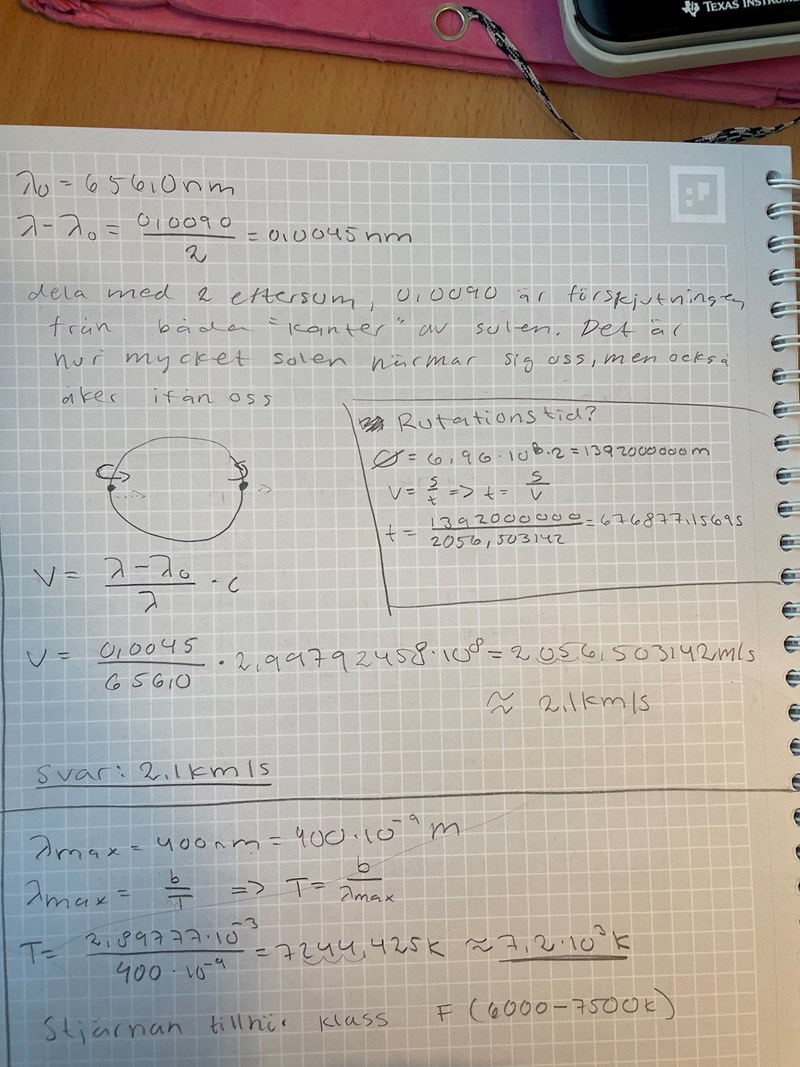 TEXAS INSTRUM
λ₀ = 656,0 nm
λ - λ₀ = 0,0090 / 2 = 0,0045 nm
dela med 2 eftersom, 0,0090 är förskjutningen
från båda "kanter" av solen. Det är
hur mycket solen närmar sig oss, men också
åker ifån oss
Rotationstid?
Ø = 6,96·10⁸·2 = 1392000000 m
v = s/t => t = s/v
t = 1392000000 / 2056,503142 = 676877,1569s
V = (λ - λ₀) / λ · c
V = 0,0045 / 656,0 · 2,99792458·10⁸ = 2056,503142 m/s
≈ 2,1 km/s
Svar: 2,1 km/s
λmax = 400 nm = 400·10⁻⁹ m
λmax = b/T => T = b/λmax
T = 2,89777·10⁻³ / 400·10⁻⁹ = 7244,425K ≈ 7,2·10³ K
Stjärnan tillhör klass F (6000-7500K)